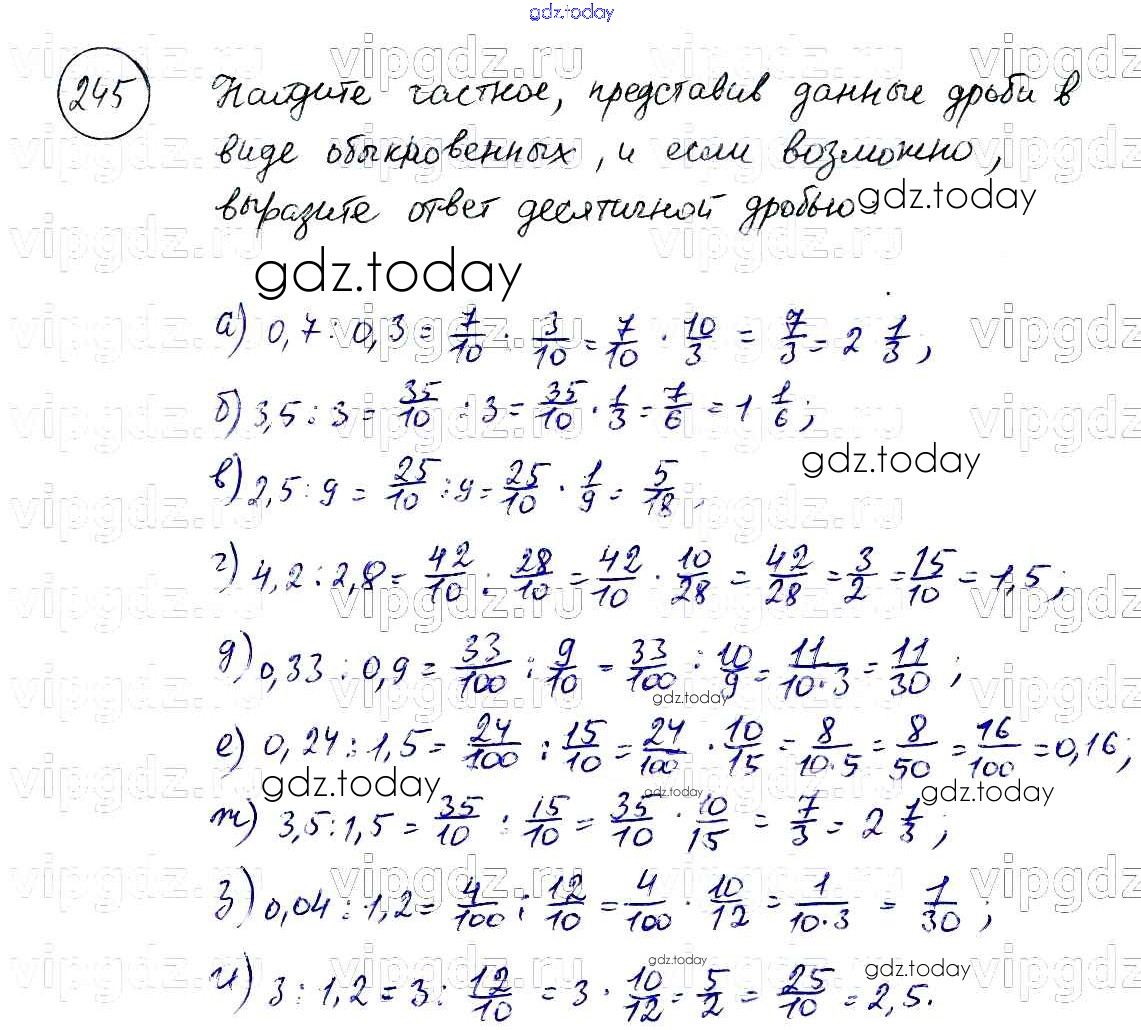 gdz.today
245
Найдите частное, представив данные дроби в
виде обыкновенных, и если возможно,
выразите ответ десятичной дробью.
gdz.today
gdz.today
а) 0,7 : 0,3 = 7/10 : 3/10 = 7/10 · 10/3 = 7/3 = 2 1/3;
б) 3,5 : 3 = 35/10 : 3 = 35/10 · 1/3 = 7/6 = 1 1/6;
gdz.today
в) 2,5 : 9 = 25/10 : 9 = 25/10 · 1/9 = 5/18.
г) 4,2 : 2,8 = 42/10 : 28/10 = 42/10 · 10/28 = 42/28 = 3/2 = 15/10 = 1,5;
д) 0,33 : 0,9 = 33/100 : 9/10 = 33/100 : 10/9 = 11/10·3 = 11/30;
gdz.today
е) 0,24 : 1,5 = 24/100 : 15/10 = 24/100 · 10/15 = 8/10·5 = 8/50 = 16/100 = 0,16;
gdz.today
gdz.today
gdz.today
ж) 3,5 : 1,5 = 35/10 : 15/10 = 35/10 · 10/15 = 7/3 = 2 1/3;
з) 0,04 : 1,2 = 4/100 : 12/10 = 4/100 · 10/12 = 1/10·3 = 1/30;
gdz.today
gdz.today
и) 3 : 1,2 = 3 : 12/10 = 3 · 10/12 = 5/2 = 25/10 = 2,5.
vipgdz.ru